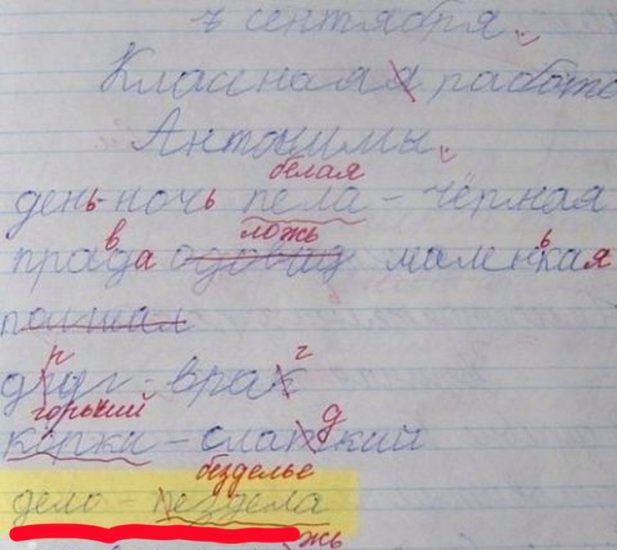 7 сентября.
Классная работа
Антонимы.
белая
день-ночь пела - чёрная
ложь
в
ь
прада маленкая
р
г
друг - врак
горький
д
коржи - слаткий
безделье
дело - пездела
жь